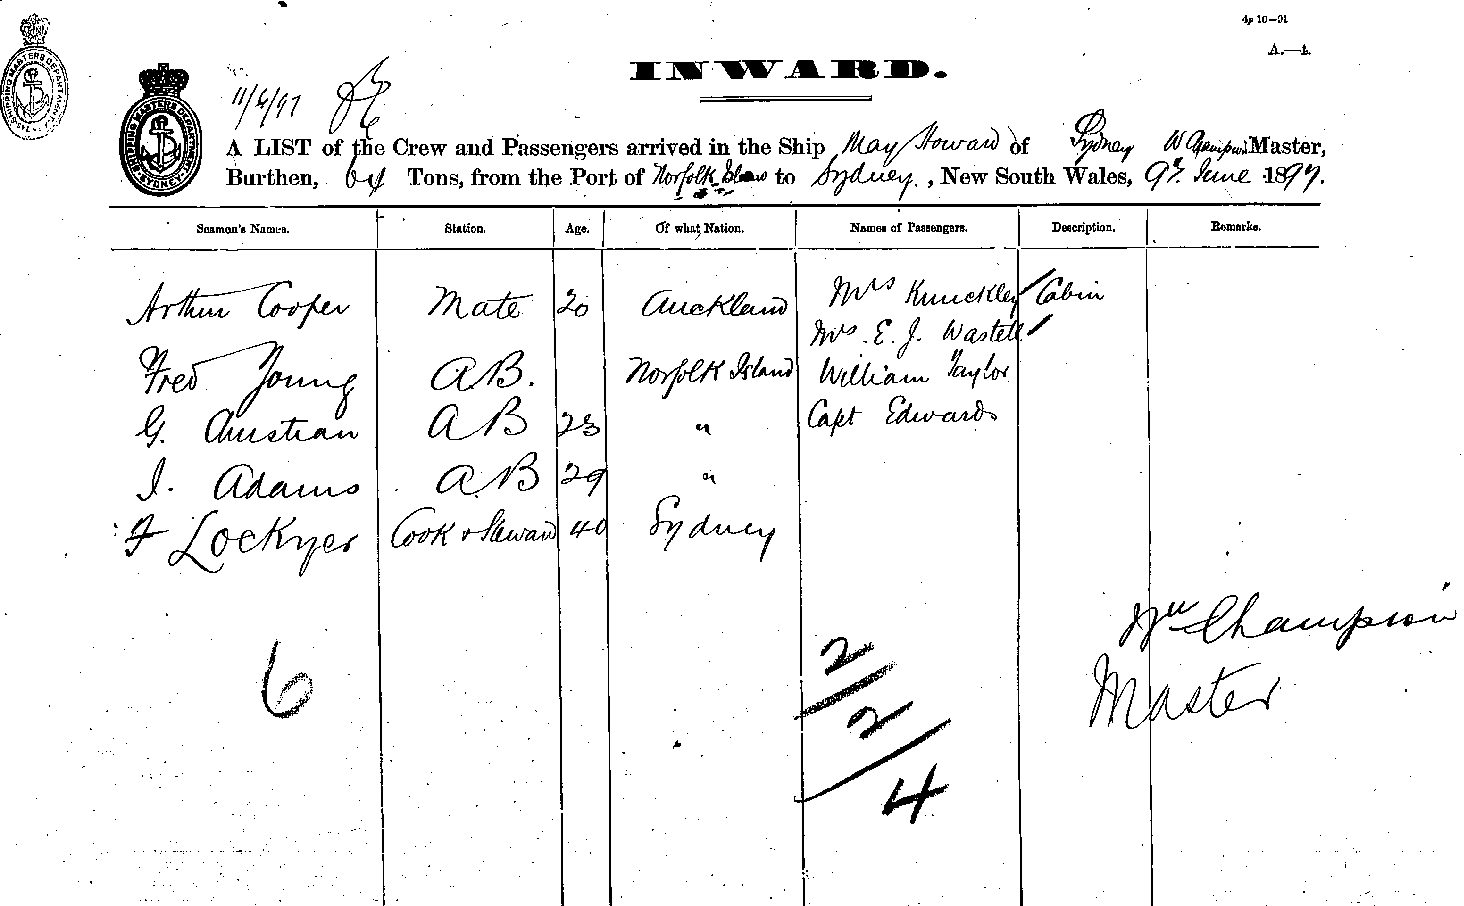 4p 10—91
A.—1.
INWARD.
11/6/97
A LIST of the Crew and Passengers arrived in the Ship May Howard of Sydney W Champion Master,
Burthen, 64 Tons, from the Port of Norfolk Island to Sydney, New South Wales, 9th June 1897.
Seamen's Names. Station. Age. Of what Nation. Names of Passengers. Description. Remarks.
Arthur Cooper Mate 20 Auckland Mrs Knuckley Cabin
Mrs. E. J. Wastell
Fred Young AB. Norfolk Island William Taylor
G. Christian AB 23 " Capt Edwards
J. Adams AB 29 "
F Lockyer Cook & Steward 40 Sydney
Wm Champion
6 2 Master
2
4